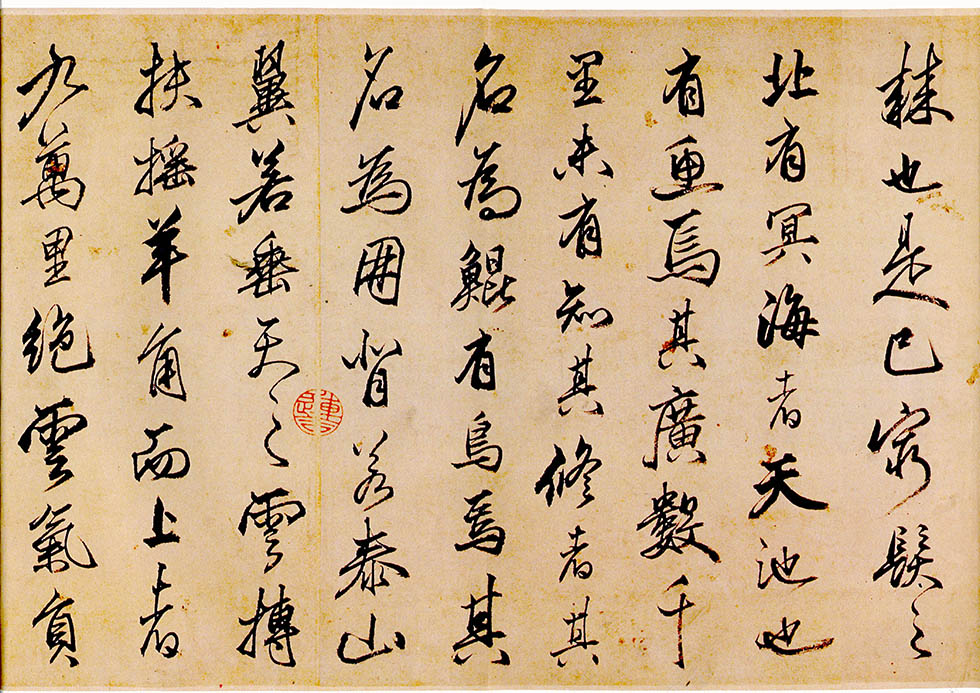 棘也是已窮髮之
北有冥海者天池也
有魚焉其廣數千
里未有知其脩者其
名為鯤有鳥焉其
名為鵬背若泰山
翼若垂天之雲摶
扶搖羊角而上者
九萬里絕雲氣負